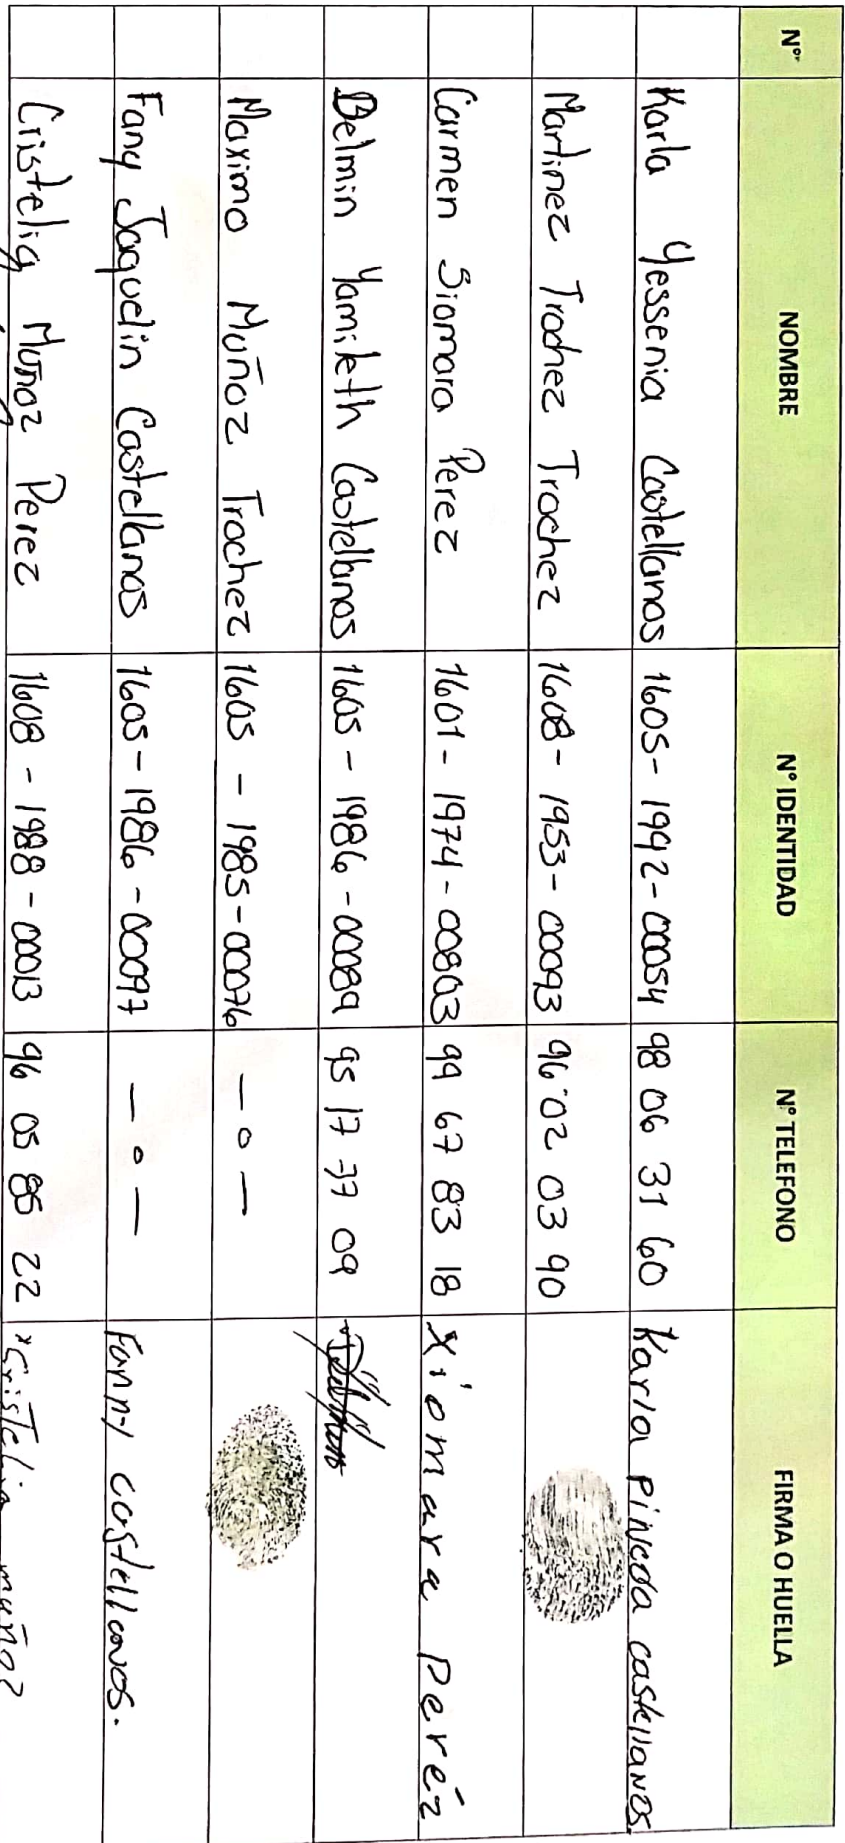 N°- NOMBRE N° IDENTIDAD N° TELEFONO FIRMA O HUELLA
Karla Yessenia Castellanos 1605-1992-00054 98 06 31 60 Karla pineda castellanos
Martinez Trochez Trochez 1608-1953-00093 96 02 03 90
Carmen Siomara Perez 1601-1974-00803 99 67 83 18 Xiomara Peréz
Belmin Yamileth Castellanos 1605-1986-00089 95 17 37 09
Maximo Muñoz Trochez 1605-1985-00076 —o—
Fany Jaquelin Castellanos 1605-1986-00097 —o— Fanny castellanos.
Cristelig Muñoz Perez 1608-1988-00013 96 05 85 22 muñoz